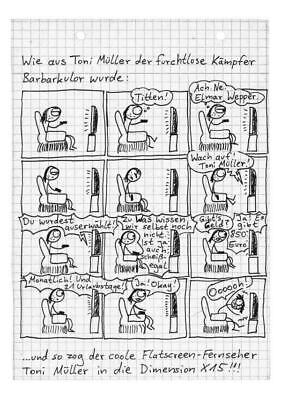 Wie aus Toni Müller der furchtlose Kämpfer
Barbarkulor wurde:
Titten!
Ach. Ne.
Elmar Wepper.
Wach auf!
Toni Müller!
Du wurdest
auserwählt!
Zu Was wissen
wir selbst noch
nicht.
Ist ja
auch
scheiß-
egal.
Gibt's
Geld?
Ja! Es
gibt
850
Euro!
Monatlich! Und
21 Urlaubstage!
Ja! Okay!
Oooooh!
...und so zog der coole Flatscreen-Fernseher
Toni Müller in die Dimension X15!!!